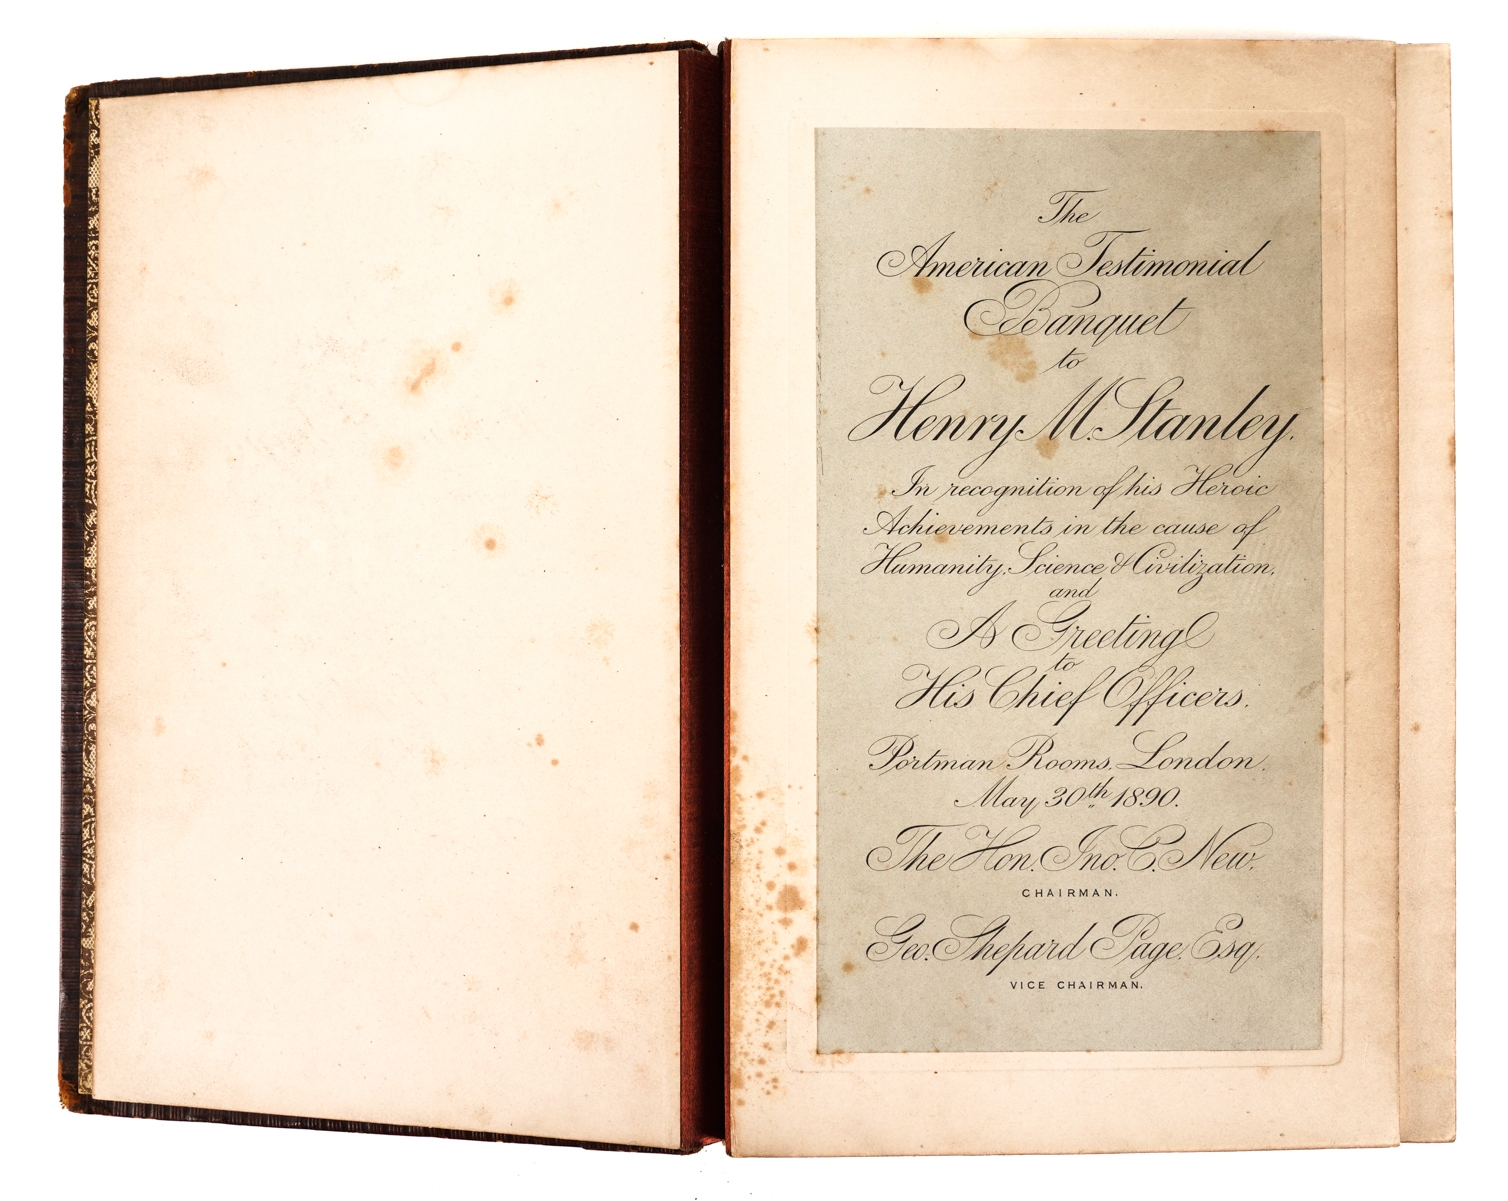 The
American Testimonial
Banquet
to
Henry M. Stanley.
In recognition of his Heroic
Achievements in the cause of
Humanity, Science & Civilization,
and
A Greeting
to
His Chief Officers.
Portman Rooms, London.
May 30th 1890.
The Hon. Jno. C. New.
CHAIRMAN.
Geo. Shepard Page, Esq.
VICE CHAIRMAN.